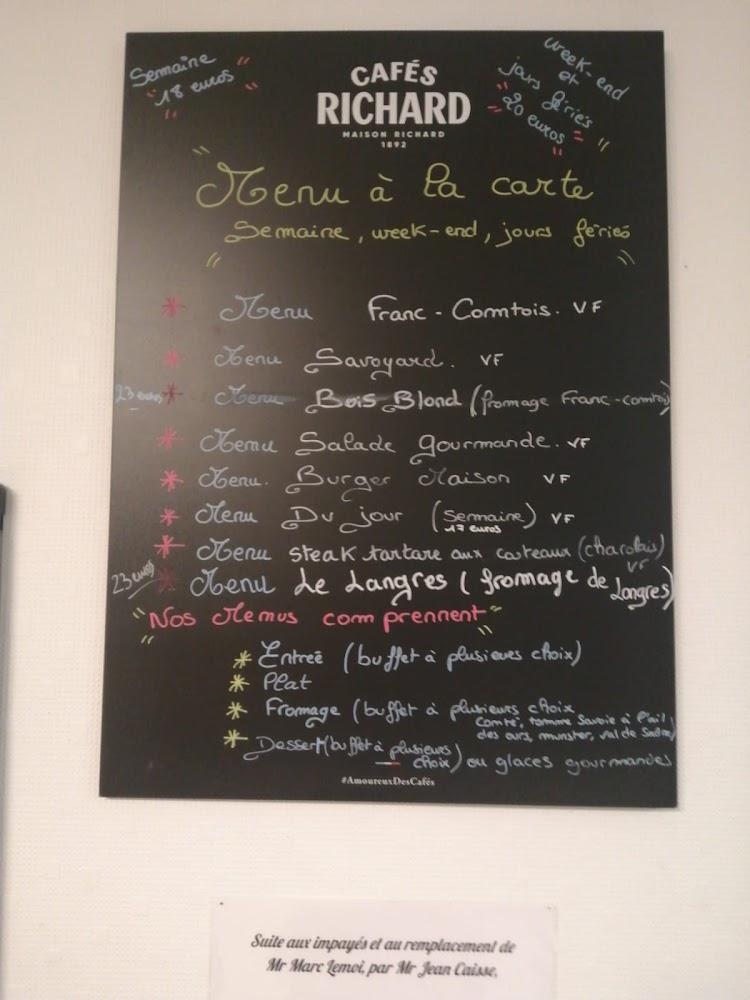 Semaine
"18 euros"
week-end
et
jours fériés
"20 euros"
CAFÉS
RICHARD
MAISON RICHARD
1892
"Menu à la carte
Semaine, week-end, jours fériés"
* Menu Franc-Comtois. VF
* Menu Savoyard. VF
23 euros * Menu Bois Blond (fromage Franc-comtois)
* Menu Salade gourmande. VF
* Menu. Burger Maison VF
* Menu Du jour (Semaine) VF
17 euros
* Menu steak tartare aux couteaux (charolais)
VF
23 euros * Menu Le Langres (fromage de Langres)
"Nos Menus comprennent"
* Entreé (buffet à plusieurs choix)
* Plat
* Fromage (buffet à plusieurs choix
Comté, tomme Savoie à l'ail
des ours, munster, val de Saône)
* Dessert (buffet à plusieurs choix) ou glaces gourmandes
#AmoureuxDesCafés
Suite aux impayés et au remplacement de
Mr Marc Lemoi, par Mr Jean Caisse,